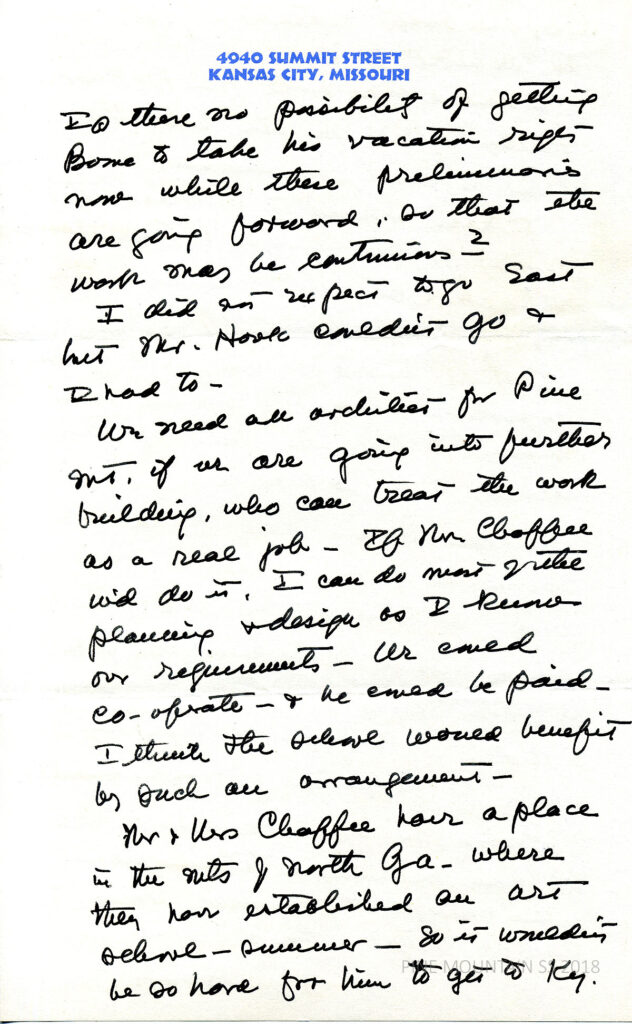 4940 SUMMIT STREET
KANSAS CITY, MISSOURI
Is there no possibility of getting
Boone to take his vacation right
now while these preliminaries
are going forward, so that the
work may be continuous?
I did not expect to go East
but Mr. Hook couldn't go &
I had to -
We need an architect for Pine
Mt. if we are going into further
building, who can treat the work
as a real job - If Mr. Chaffee
w'd do it, I can do most of the
planning & design as I know
our requirements - We could
co-operate - & he could be paid -
I think the school would benefit
by such an arrangement -
Mr & Mrs Chaffee have a place
in the mts of North Ga - where
they have established an art
school - summer - So it wouldn't
be so hard for him to get to Ky.
PINE MOUNTAIN SS 2018